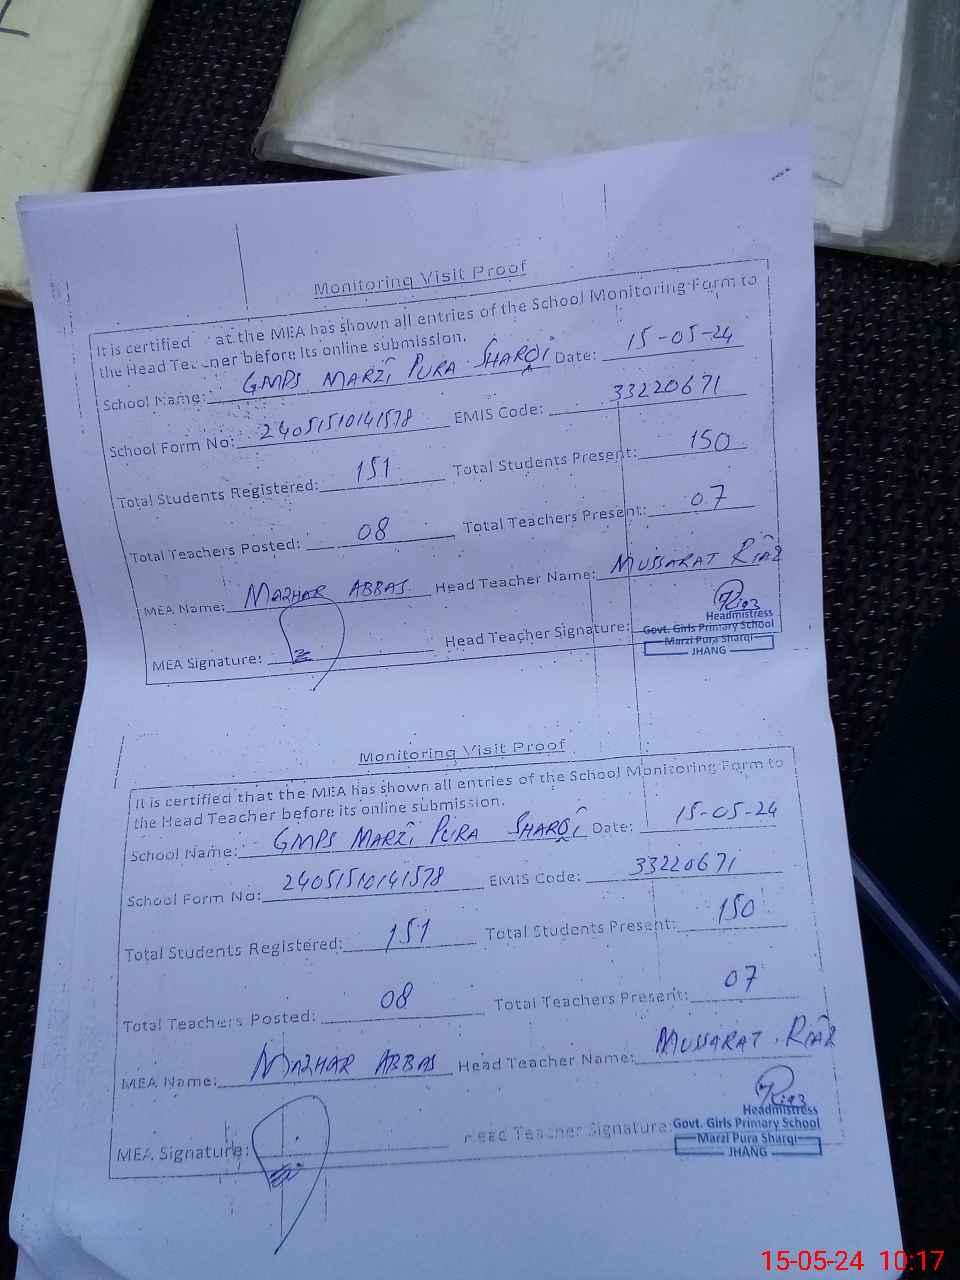 Monitoring Visit Proof
It is certified at the MEA has shown all entries of the School Monitoring Form to
the Head Teacher before its online submission.
School Name: GMPS MARZI PURA SHARQI Date: 15-05-24
School Form No: 24051510141578 EMIS Code: 33220671
Total Students Registered: 151 Total Students Present: 150
Total Teachers Posted: 08 Total Teachers Present: 07
MEA Name: MAZHAR ABBAS Head Teacher Name: MUSSARAT RIAZ
MEA Signature: Head Teacher Signature: Riaz
Headmistress
Govt. Girls Primary School
Marzi Pura Sharqi
JHANG
Monitoring Visit Proof
It is certified that the MEA has shown all entries of the School Monitoring Form to
the Head Teacher before its online submission.
School Name: GMPS MARZI PURA SHARQI Date: 15-05-24
School Form No: 24051510141578 EMIS Code: 33220671
Total Students Registered: 151 Total Students Present: 150
Total Teachers Posted: 08 Total Teachers Present: 07
MEA Name: MAZHAR ABBAS Head Teacher Name: MUSSARAT RIAZ
MEA Signature: Head Teacher Signature: Riaz
Headmistress
Govt. Girls Primary School
Marzi Pura Sharqi
JHANG
15-05-24 10:17